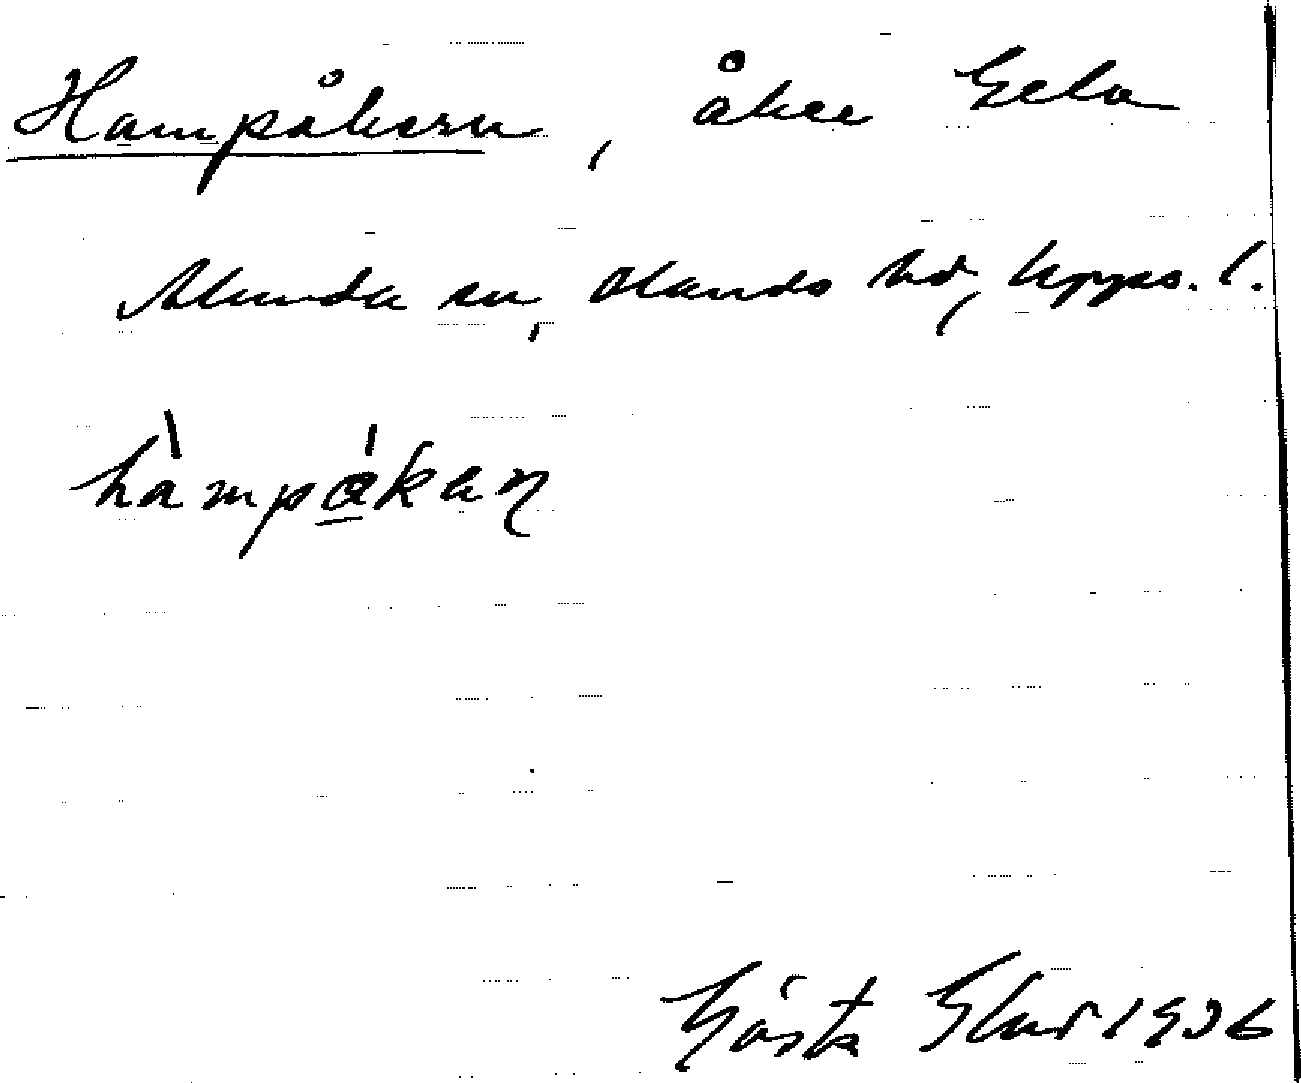 Hampåkern, åker Gela
Alunda sn, Olands hd, Upps. l.
hàmpåkaɳ
Gösta 1936